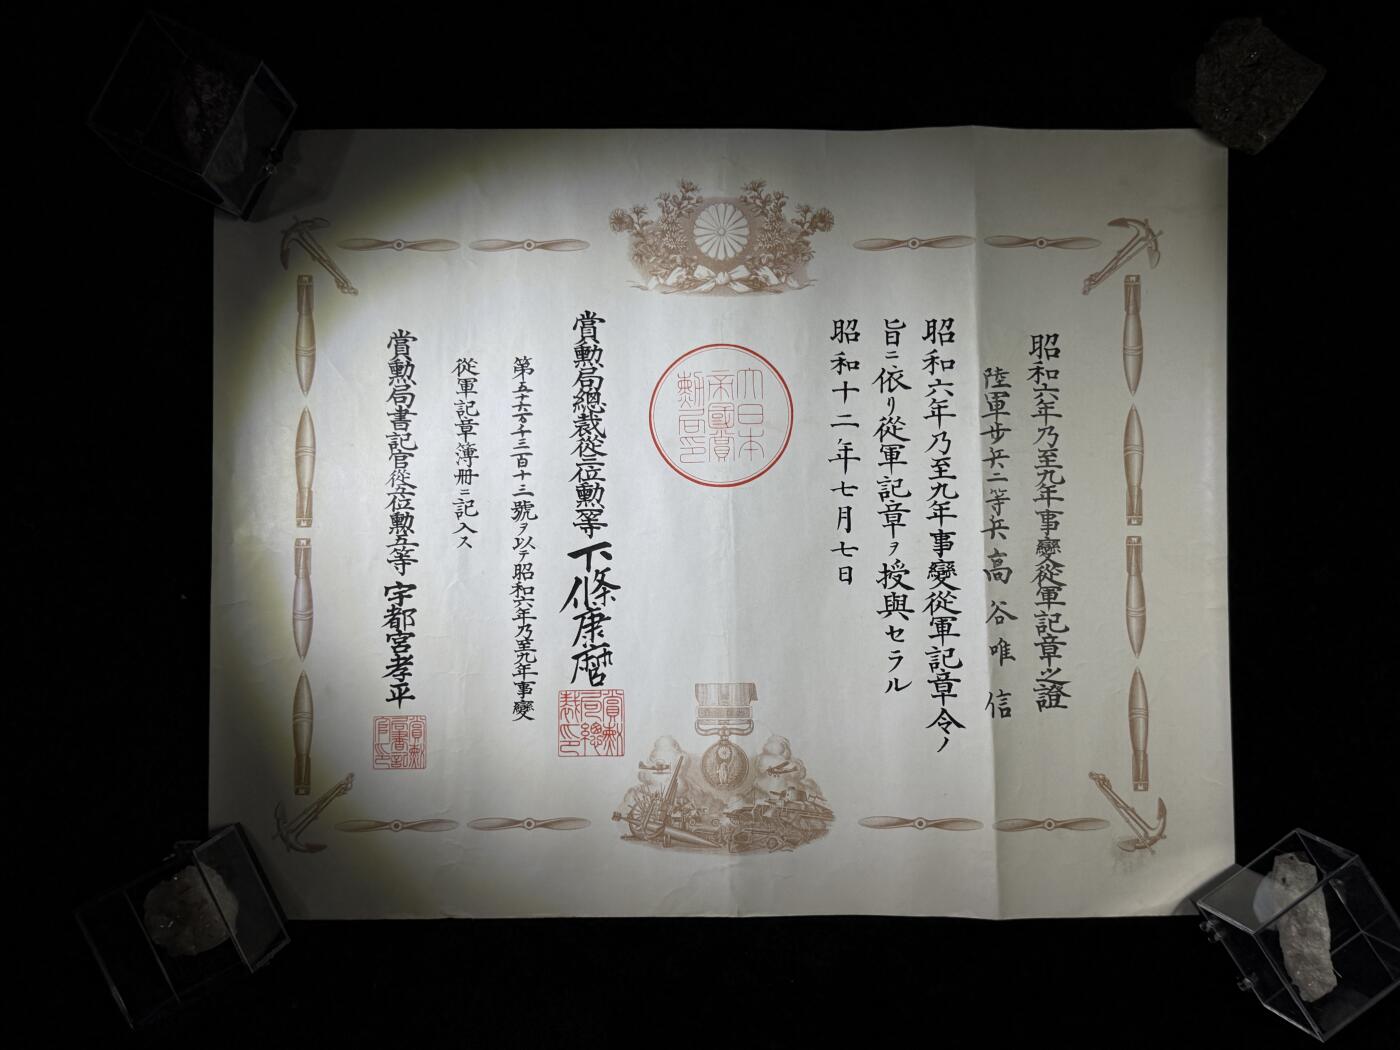 昭和六年乃至九年事變從軍記章之證
陸軍步兵二等兵高谷唯信
昭和六年乃至九年事變從軍記章令ノ
旨ニ依リ從軍記章ヲ授與セラル
昭和十二年七月七日
大日本
帝國賞
勲局印
賞勲局總裁從三位勲一等下條康麿
賞勲
局總
裁印
第五十六万千三百十三號ヲ以テ昭和六年乃至九年事變
從軍記章簿册ニ記入ス
賞勲局書記官從五位勲五等宇都宮孝平
賞勲
局書記
官印